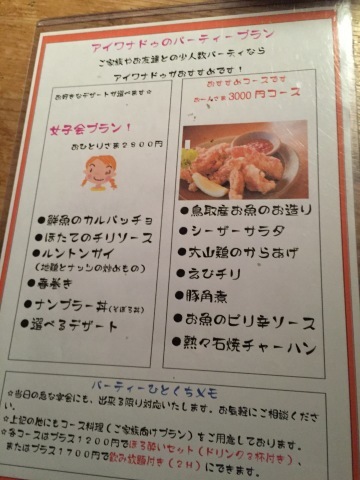 アイワナドゥのパーティープラン
ご家族やお友達との少人数パーティなら
アイワナドゥがおすすめです！
お好きなデザートが選べます☆
女子会プラン！
おひとりさま2800円
●鮮魚のカルパッチョ
●ほたてのチリソース
●ルントンガイ
(地鶏とナッツの炒めもの)
●春巻き
●ナンプラー丼(そぼろ丼)
●選べるデザート
おすすめコースです
お一人さま3000円コース
●鳥取産お魚のお造り
●シーザーサラダ
●大山鶏のからあげ
●えびチリ
●豚角煮
●お魚のピリ辛ソース
●熱々石焼チャーハン
パーティーひとくちメモ
☆当日の急な宴会にも、出来る限り対応いたします。お気軽にご相談くださ
い。
☆上記の他にもコース料理(ご家族向けプラン)をご用意しております。
☆各コースはプラス1200円でほろ酔いセット(ドリンク2杯付き)、
またはプラス1700円で飲み放題付き(2H)にできます。